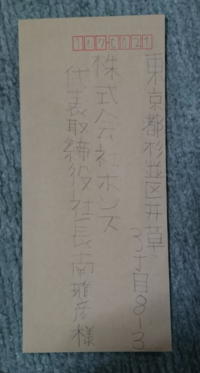 167-0021
東京都杉並区井草
3丁目8-3
株式会社ホンズ
代表取締役社長南雅彦様